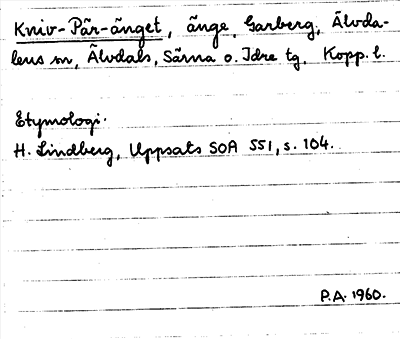 Kniv-Pär-änget, änge, Garberg, Älvda-
lens sn, Älvdals, Särna o. Idre tg, Kopp. l.
Etymologi.
H. Lindberg, Uppsats SOA 551, s. 104.
P.A. 1960.